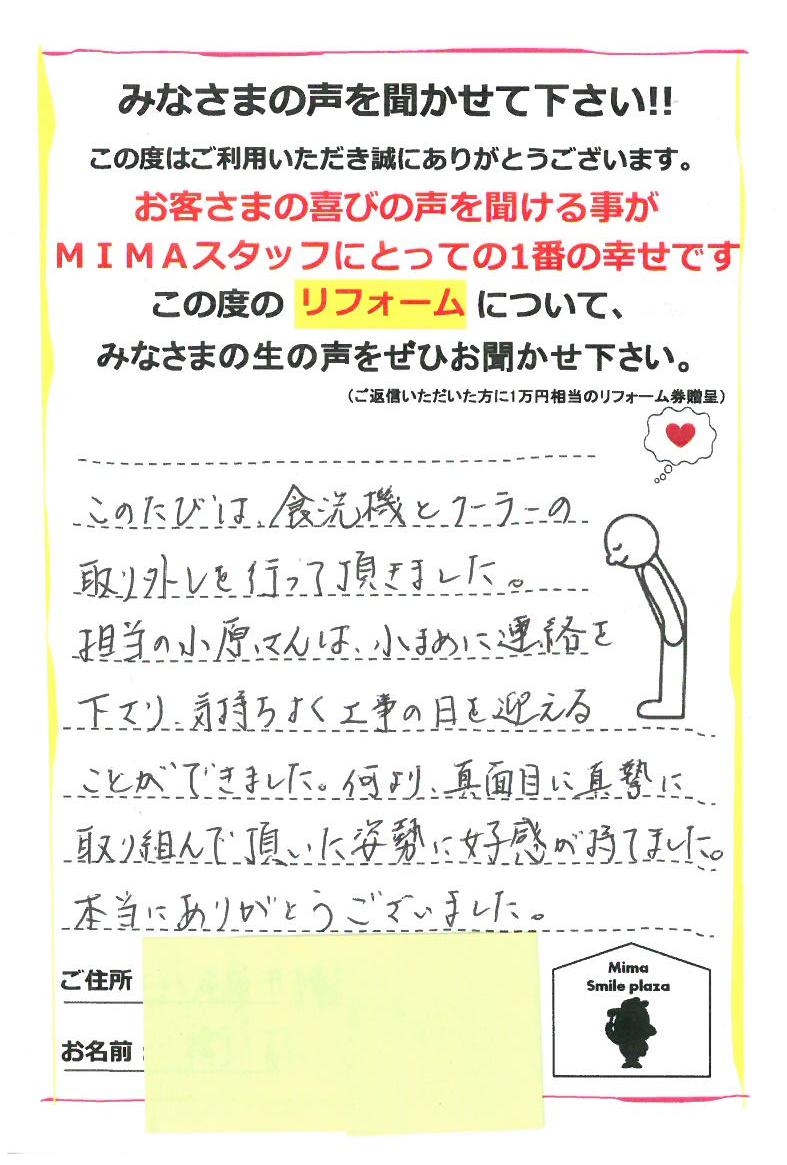 みなさまの声を聞かせて下さい!!
この度はご利用いただき誠にありがとうございます。
お客さまの喜びの声を聞ける事が
ＭＩＭＡスタッフにとっての1番の幸せです
この度の リフォーム について、
みなさまの生の声をぜひお聞かせ下さい。
（ご返信いただいた方に1万円相当のリフォーム券贈呈）
このたびは、食洗機とクーラーの
取り外しを行って頂きました。
担当の小原さんは、小まめに連絡を
下さり、気持ちよく工事の日を迎える
ことができました。何より、真面目に真摯に
取り組んで頂いた姿勢に好感が持てました。
本当にありがとうございました。
ご住所
お名前：
Mima
Smile plaza